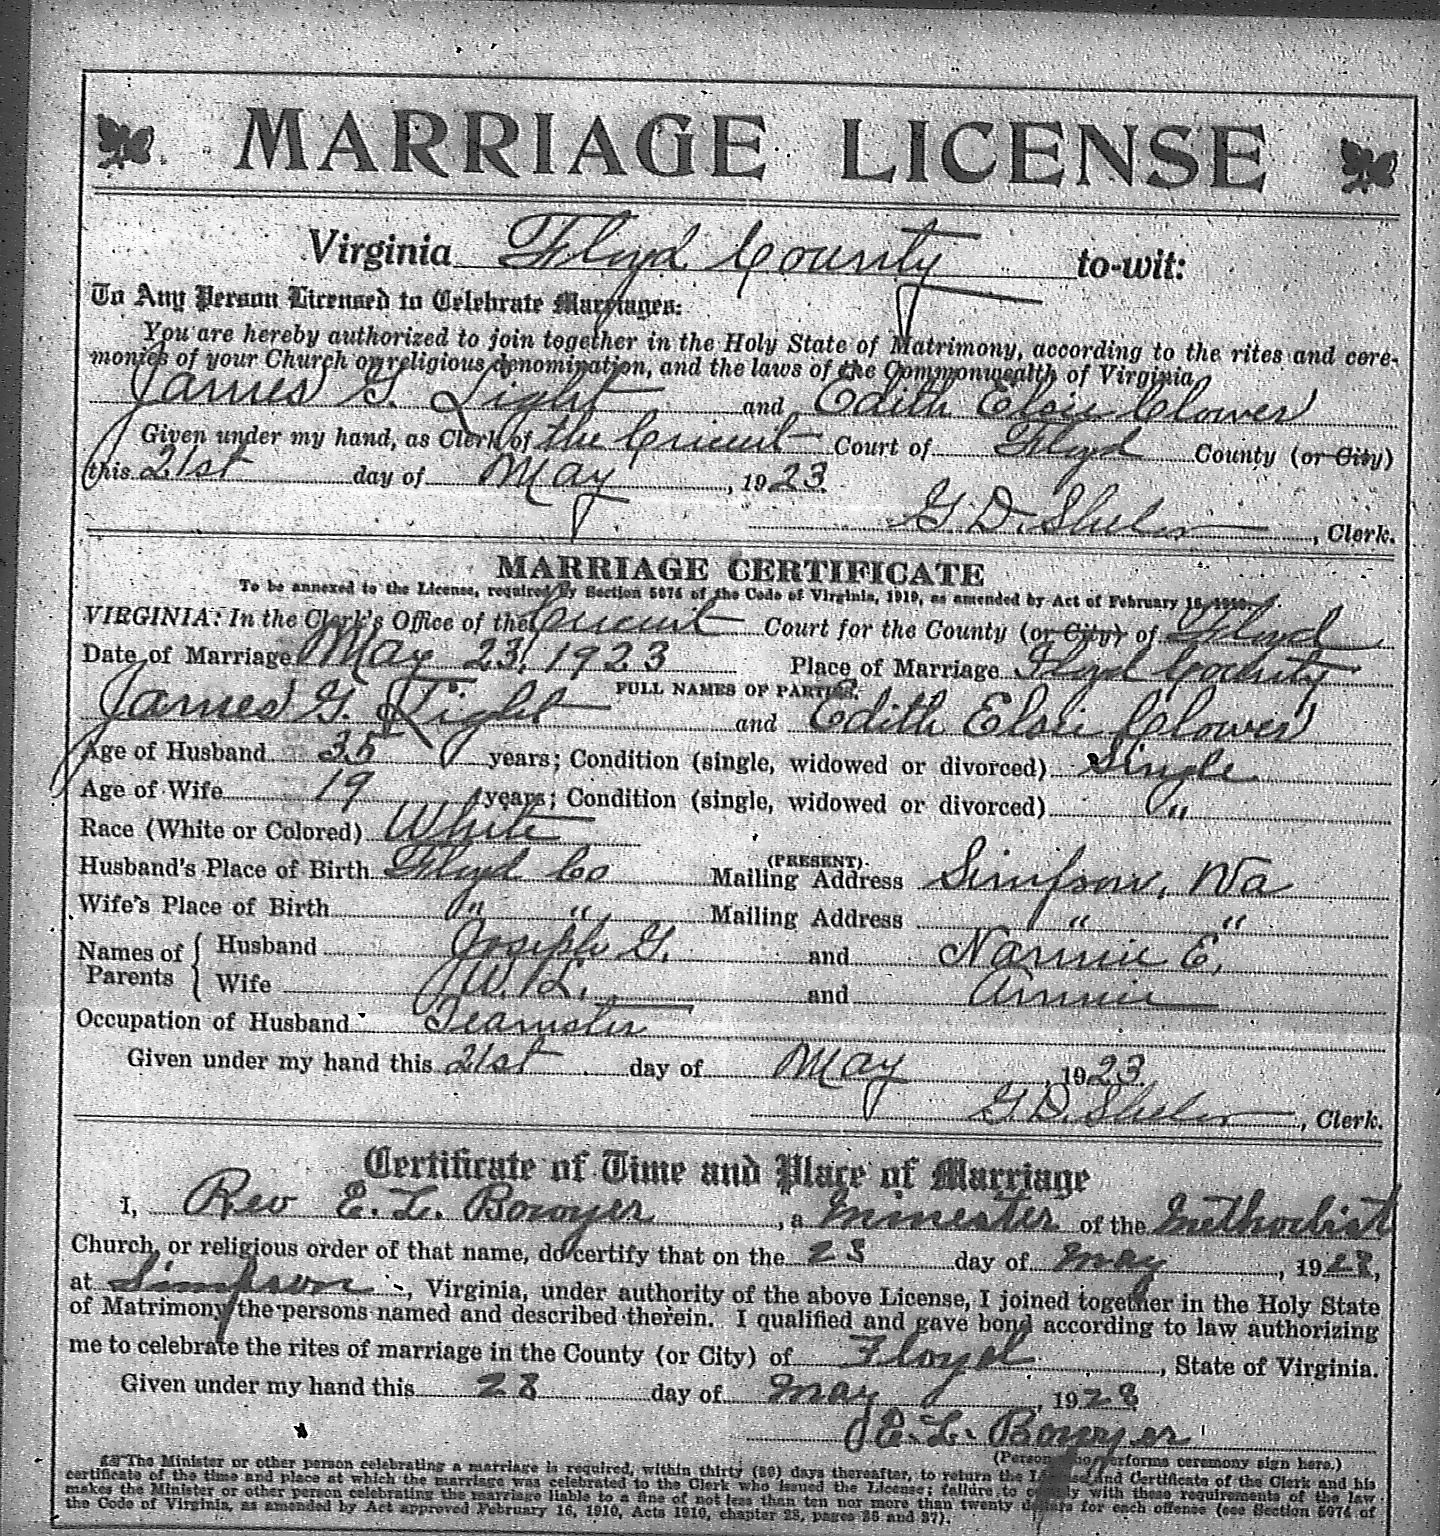 MARRIAGE LICENSE
Virginia Floyd County to-wit:
To Any Person Licensed to Celebrate Marriages:
You are hereby authorized to join together in the Holy State of Matrimony, according to the rites and cere-
monies of your Church or religious denomination, and the laws of the Commonwealth of Virginia,
James G. Light and Edith Elsie Clower
Given under my hand, as Clerk of the Circuit Court of Floyd County (or City)
this 21st day of May, 1923.
G. D. Shelor, Clerk.
MARRIAGE CERTIFICATE
To be annexed to the License, required by Section 5074 of the Code of Virginia, 1919, as amended by Act of February
VIRGINIA: In the Clerk's Office of the Circuit Court for the County (or City) of Floyd
Date of Marriage May 23, 1923 Place of Marriage Floyd County
FULL NAMES OF PARTIES.
James G. Light and Edith Elsie Clower
Age of Husband 35 years; Condition (single, widowed or divorced) Single
Age of Wife 19 years; Condition (single, widowed or divorced) "
Race (White or Colored) White
Husband's Place of Birth Floyd Co (PRESENT) Mailing Address Simpson, Va
Wife's Place of Birth " " Mailing Address " "
Names of Parents { Husband Joseph G. and Nannie E.
Wife W. L. and Annie
Occupation of Husband Teamster
Given under my hand this 21st day of May, 1923.
G. D. Shelor, Clerk.
Certificate of Time and Place of Marriage
I, Rev E. L. Bowyer, a Minester of the Methodist
Church, or religious order of that name, do certify that on the 23 day of May, 1923,
at Simpson, Virginia, under authority of the above License, I joined together in the Holy State
of Matrimony the persons named and described therein. I qualified and gave bond according to law authorizing
me to celebrate the rites of marriage in the County (or City) of Floyd, State of Virginia.
Given under my hand this 23 day of May, 1923
E. L. Bowyer
(Person who performs ceremony sign here.)
The Minister or other person celebrating a marriage is required, within thirty (30) days thereafter, to return the License and Certificate of the Clerk and his
certificate of the time and place at which the marriage was celebrated to the Clerk who issued the License; failure to comply with these requirements of the law
makes the Minister or other person celebrating the marriage liable to a fine of not less than ten nor more than twenty dollars for each offense (see Section 5074 of
the Code of Virginia, as amended by Act approved February 16, 1910, Acts 1910, chapter 28, pages 35 and 37).